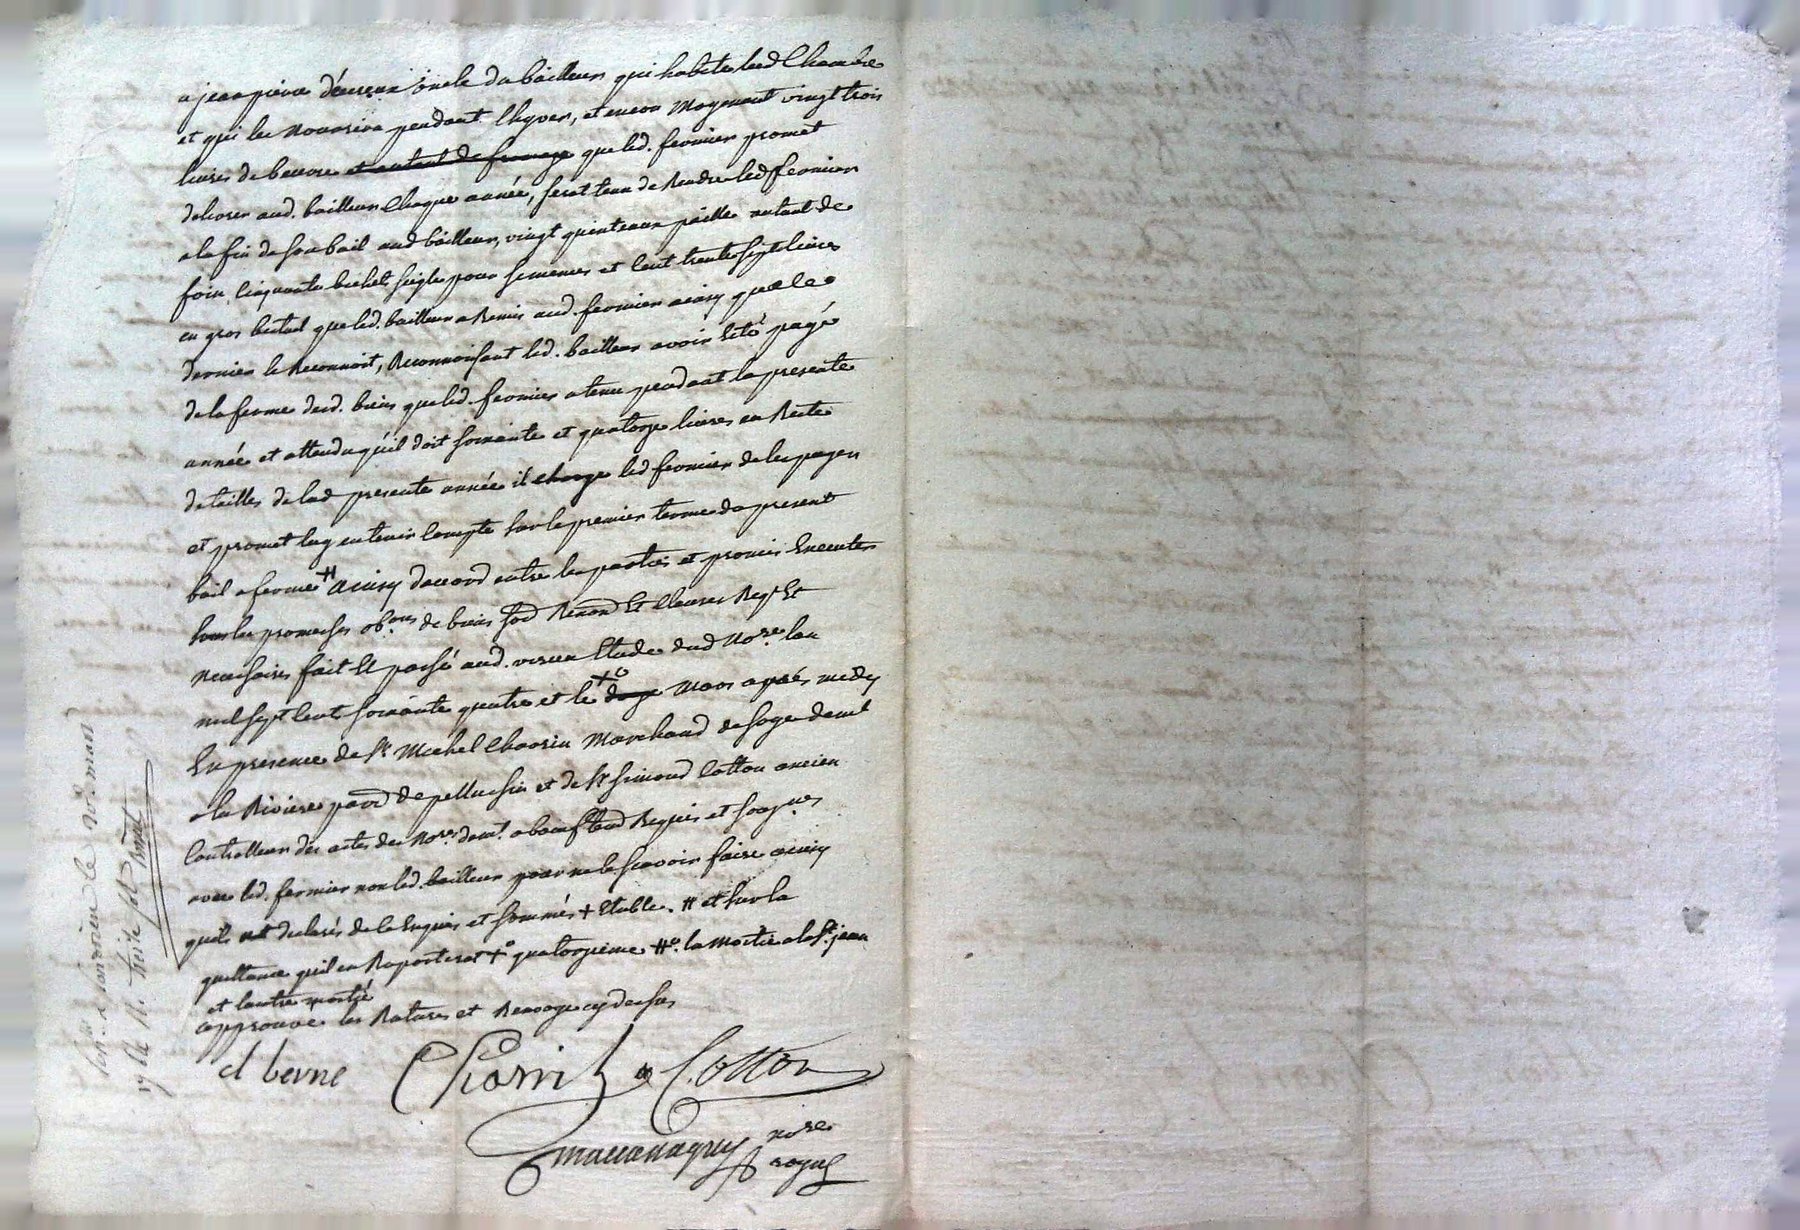 a jean pierre oncle du bailleur qui habite led chambre
et qui les nourrira pendant lhyver, et encor moyenant vingt trois
livres de beurre et autant de fromage que led. fermier promet
delivrer aud. bailleur chaque année, serat tenu de Rendre led fermier
a la fin de son bail aud bailleur, vingt quinteaux paille autant de
foin, cinquante bichets seigle pour semences et cent trente sept livres
en gros bestail que led. bailleur a Remis aud. fermier ainsy que le
dernier le Reconnoit, Reconnoissant led. bailleur avoir été payé
de la ferme desd. biens que led. fermier a tenu pendant la presente
année et attendu qu'il doit soixante et quatorze livres en Reste
de tailles de lad presente année il charge led fermier de les payer
et promet luy en tenir compte sur le premier terme du present
bail a ferme # ainsy daccord entre les parties et promis Executer
sous les promesses obons de biens sod Renond et clauses Reqt Et
necessaires fait et passé aud. Etude dud nore. lan
mil sept cent soixante quatre et le +o douze mars après midy
En presence de sr. Michel Chorin Marchand de soye demt
a la Riviere parr de pellussin et de sr simond Cotton ancien
Controlleur des actes des nores. demt. a bœuf Requis et soagnes
avec led. fermier non led. bailleur pour ne le scavoir faire ainsy
quils ont declarés de ce Enquis et sommés + Etable. # et sur la
quittance quil en Raporterat +o quatorzieme #o. la moitié a la st. jean
et lautre moitié
approuvé les Ratures et Renvoye cy dessus
cl berne Chorin Cotton
nore
royal
Con. le 20e. mars